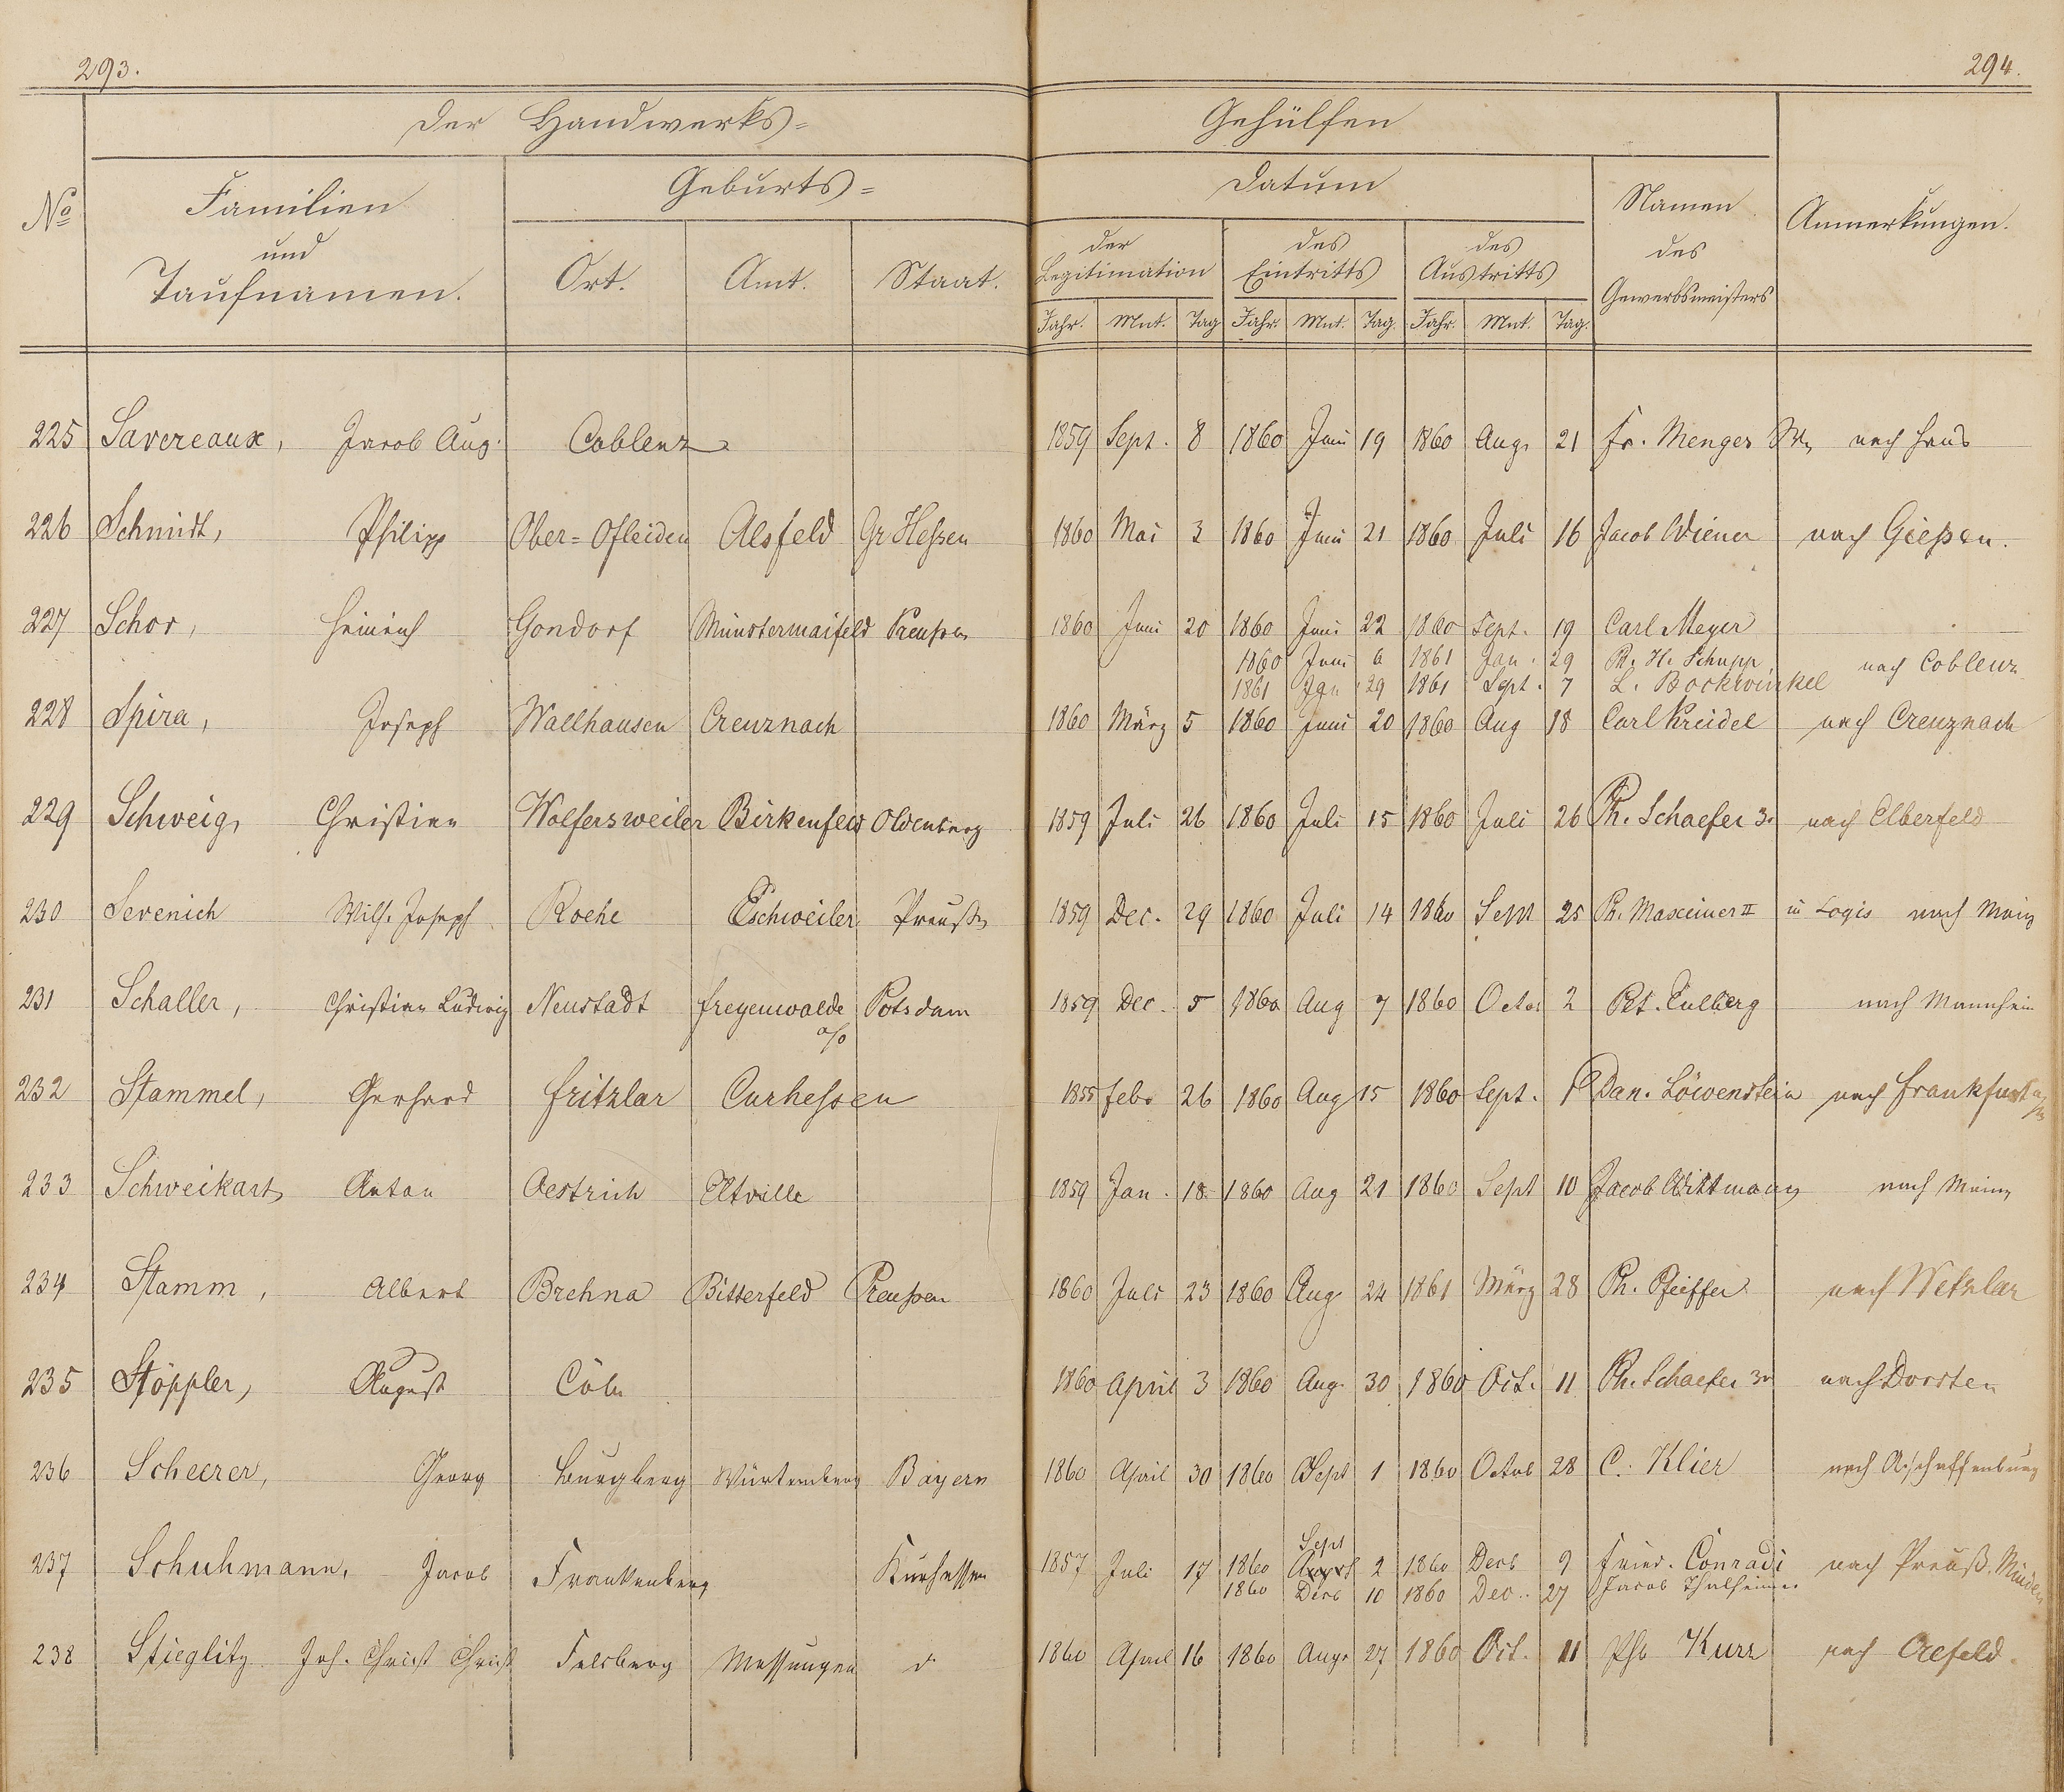 293.
294.
Der Handwerks=
Gehülfen
No
Familien
und
Taufnamen.
Geburts=
Ort.
Amt.
Staat.
Datum
der
Legitimation
des
Eintritts
des
Austritts
Jahr. Mnt. Tag Jahr. Mnt. Tag. Jahr. Mnt. Tag.
Namen
des
Gewerbsmeisters
Anmerkungen.
225 Savereaux, Jacob Aug. Coblenz 1859 Sept. 8 1860 Juni 19 1860 Aug. 21 Fr. Menges nach Haus
226 Schmidt, Philipp Ober=Ofleiden Alsfeld Gr Heßen 1860 Mai 3 1860 Juni 21 1860 Juli 16 Jacob Wiener nach Gießen.
227 Schor, Heinrich Gondorf Münstermaifeld Preußen 1860 Juni 20 1860 Juni 22 1860 Sept. 19 Carl Meyer
1860 Juni 6 1861 Jan. 29 Ph. H. Schupp nach Coblenz
1861 Jan 29 1861 Sept. 7 L. Bockwinkel
228 Spira, Joseph Wallhausen Creuznach 1860 März 5 1860 Juni 20 1860 Aug 18 Carl Kreidel nach Creuznach
229 Schweig, Christian Wolfersweiler Birkenfeld Oldenburg 1859 Juli 26 1860 Juli 15 1860 Juli 26 Ph. Schaefer 3. nach Elberfeld
230 Sevenich Wilh. Joseph Roehe Eschweiler Preußen 1859 Dec. 29 1860 Juli 14 1860 Sept 25 Ph. Maxeiner II in Logis nach Mainz
231 Schaller, Christian Ludwig Neustadt Freyenwalde a/o Potsdam 1859 Dec. 5 1860 Aug 7 1860 Octor 2 Pet. Eulberg nach Mannheim
232 Stammel, Gerhard Fritzlar Curhessen 1855 Febr 26 1860 Aug 15 1860 Sept. 1 Dan. Löwenstein nach Frankfurt a/M
233 Schweikart, Anton Oestrich Eltville 1859 Jan. 18 1860 Aug 21 1860 Sept 10 Jacob Wittmann nach Mainz
234 Stamm, Albert Brehna Bitterfeld Preußen 1860 Juli 23 1860 Aug. 24 1861 März 28 Ph. Pfeiffer nach Wetzlar
235 Stöppler, August Cöln 1860 April 3 1860 Aug. 30 1860 Oct. 11 Ph. Schaefer 3r nach Dorsten
236 Scheerer, Georg Burgberg Würtemberg Bayern 1860 April 30 1860 Sept 1 1860 Octob 28 C. Klier nach Aschaffenburg
237 Schuhmann, Jacob Frankenberg Kurhessen 1857 Juli 17 1860 Sept 2 1860 Decb 9 Fried. Conradi nach Preuß. Minden
1860 Decb 10 1860 Dec. 27 Jacob Thalheimer
238 Stieglitz Joh. Christ Christ Felsberg Melsungen d 1860 April 16 1860 Aug. 27 1860 Oct. 11 Kurz nach Crefeld.